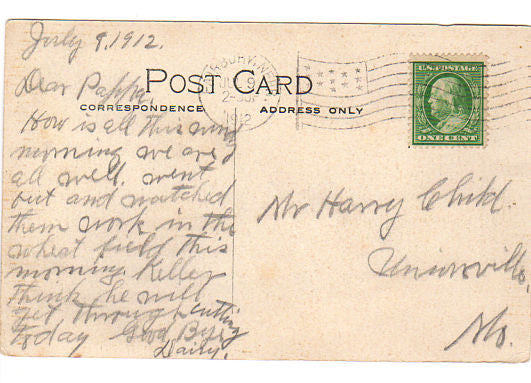 July 9, 1912.
POST CARD
CORRESPONDENCE
ADDRESS ONLY
JUL 9
1912
U.S. POSTAGE
ONE CENT
Dear Pappy,
How is all this
morning we are
all well. went
out and watched
them work in the
wheat field this
morning Keller
think he will
get through cutting
today Good Bye
Daisy.
Mr Harry Child.
Unionville,
Mo.